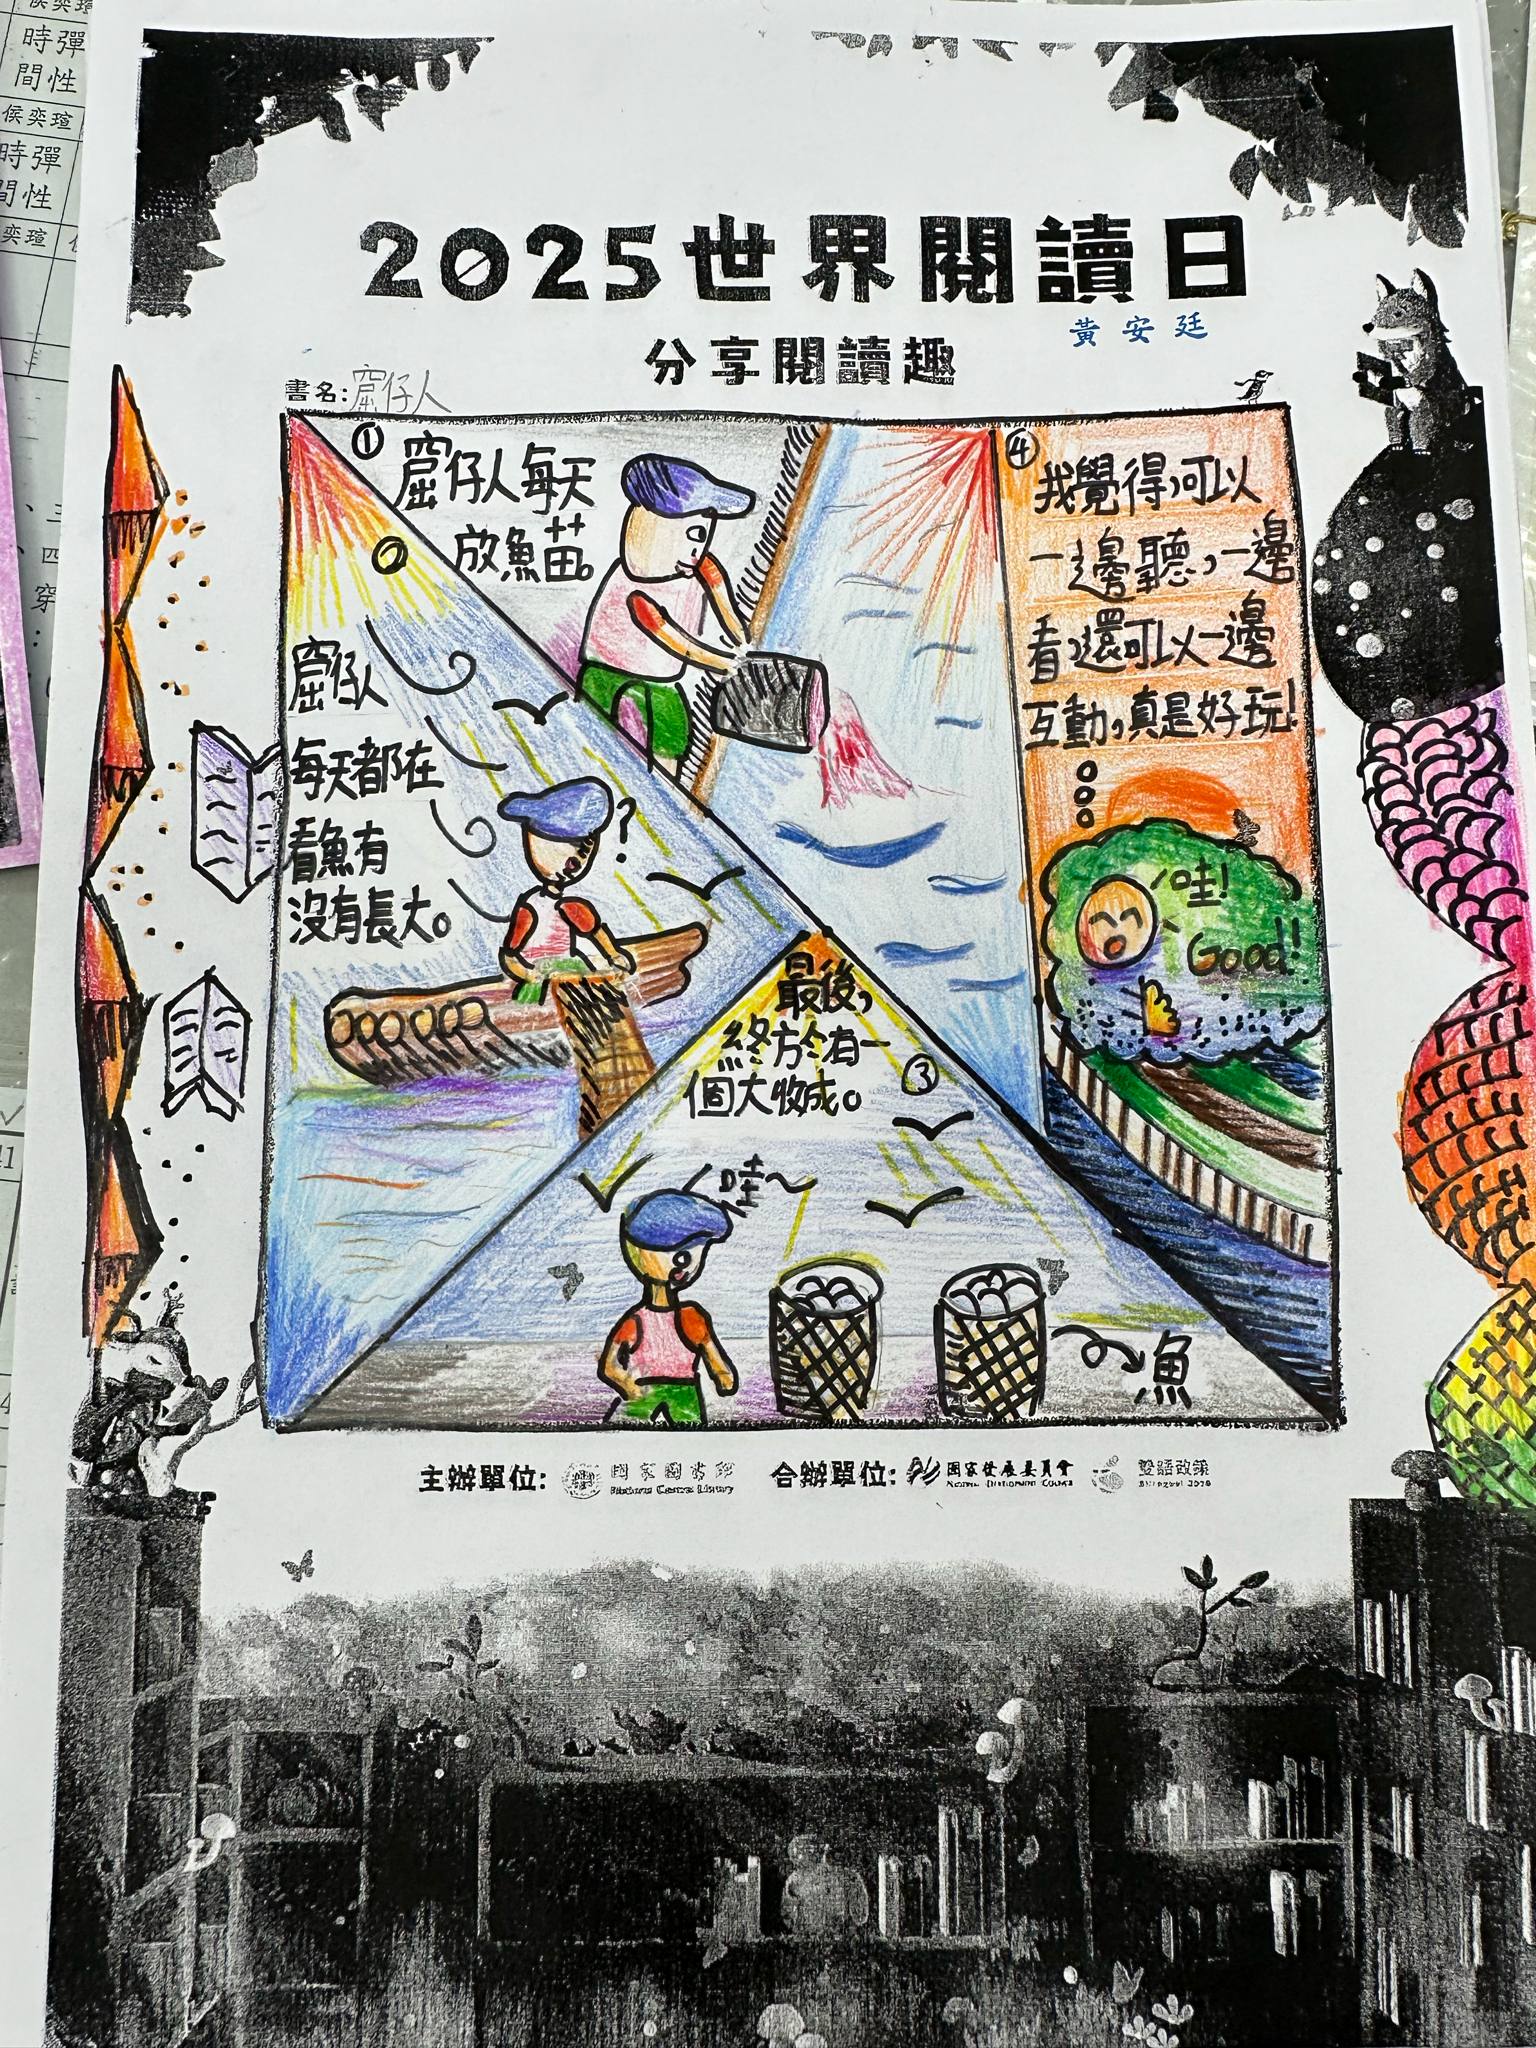 時彈
間性
侯奕瑄
時彈
間性
奕瑄
2025世界閱讀日
黃安廷
分享閱讀趣
書名:窟仔人
①
窟仔人每天
放魚苗。
②
窟仔人
每天都在
看魚有
沒有長大。
?
最後,
終於有一
個大收成。
③
哇~
魚
④
我覺得,可以
一邊聽,一邊
看,還可以一邊
互動,真是好玩!
哇!
Good!
主辦單位: 國家圖書館
National Central Library
合辦單位: 國家發展委員會
National Development Council
雙語政策
Bilingual 2030